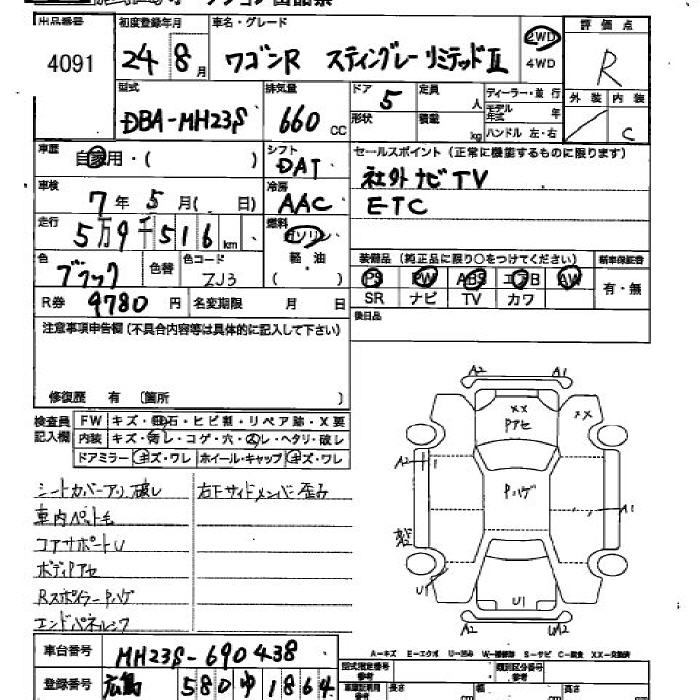 出品番号 4091
初度登録年月 24 8月
車名・グレード ワゴンR スティングレー リミテッドⅡ
2WD 4WD
評価点 R
外装 内装 C
型式 DBA-MH23S
排気量 660 CC
ドア 5
形状
定員 人
積載 kg
ディーラー・並行
モデル年式 年
ハンドル 左・右
車歴 自家用・( )
シフト DAT
セールスポイント(正常に機能するものに限ります)
社外ナビTV
ETC
車検 7年 5月( 日)
冷房 AAC
走行 5万9千516km
燃料 ガソリン 軽・油 ( )
色 ブラック
色替
色コード ZJ3
装備品(純正品に限り○をつけてください)
PS PW ABS エアB AW
SR ナビ TV カワ
新車保証書 有・無
R券 9780円
名変期限 月 日
後日品
注意事項申告欄(不具合内容等は具体的に記入して下さい)
修復歴 有 〔箇所 〕
検査員記入欄
FW キズ・飛石・ヒビ割・リペア跡・X要
内装 キズ・汚レ・コゲ・穴・スレ・ヘタリ・破レ
ドアミラー キズ・ワレ ホイール・キャップ キズ・ワレ
シートカバーアリ 破レ
右下サイドメンバー歪ミ
車内ペット毛
コアサポートU
ボディPアセ
RスポイラーPハゲ
エンドパネルシワ
A2 A1
XX Pアセ XX
A2 Pハゲ A1
U1 U1
A2 UA2
A-キズ E-エクボ U-凹み W-補修跡 S-サビ C-腐食 XX-交換済
車台番号 MH23S-690438
登録番号 広島 580 ゆ 1864
型式指定番号 参考
類別区分番号 参考
長さ cm 幅 cm 高さ cm